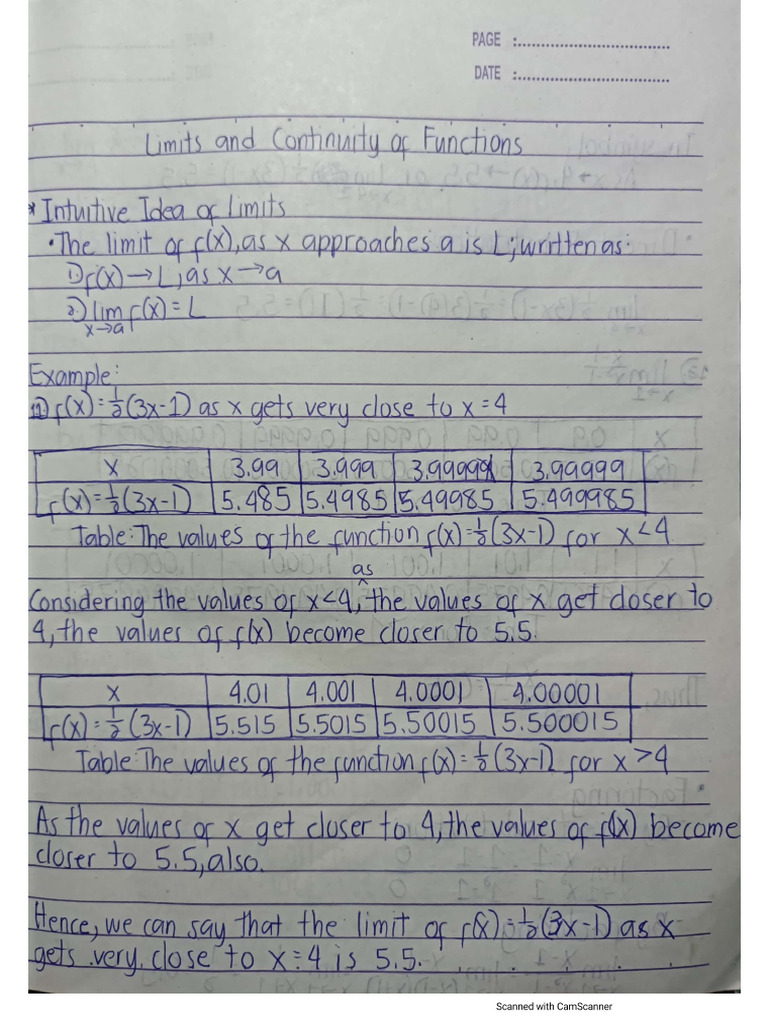 PAGE :.................................
DATE :.................................
Limits and Continuity of Functions
* Intuitive Idea of Limits
• The limit of f(x), as x approaches a is L; written as:
1) f(x) → L, as x → a
2) lim f(x) = L
x→a
Example:
1) f(x) = 1/2 (3x-1) as x gets very close to x = 4
x | 3.99 | 3.999 | 3.9999 | 3.99999
f(x) = 1/2 (3x-1) | 5.485 | 5.4985 | 5.49985 | 5.499985
Table: The values of the function f(x) = 1/2 (3x-1) for x < 4
as
Considering the values of x<4, ^ the values of x get closer to
4, the values of f(x) become closer to 5.5.
x | 4.01 | 4.001 | 4.0001 | 4.00001
f(x) = 1/2 (3x-1) | 5.515 | 5.5015 | 5.50015 | 5.500015
Table: The values of the function f(x) = 1/2 (3x-1) for x > 4
As the values of x get closer to 4, the values of f(x) become
closer to 5.5, also.
Hence, we can say that the limit of f(x) = 1/2 (3x-1) as x
gets very close to x = 4 is 5.5.
Scanned with CamScanner